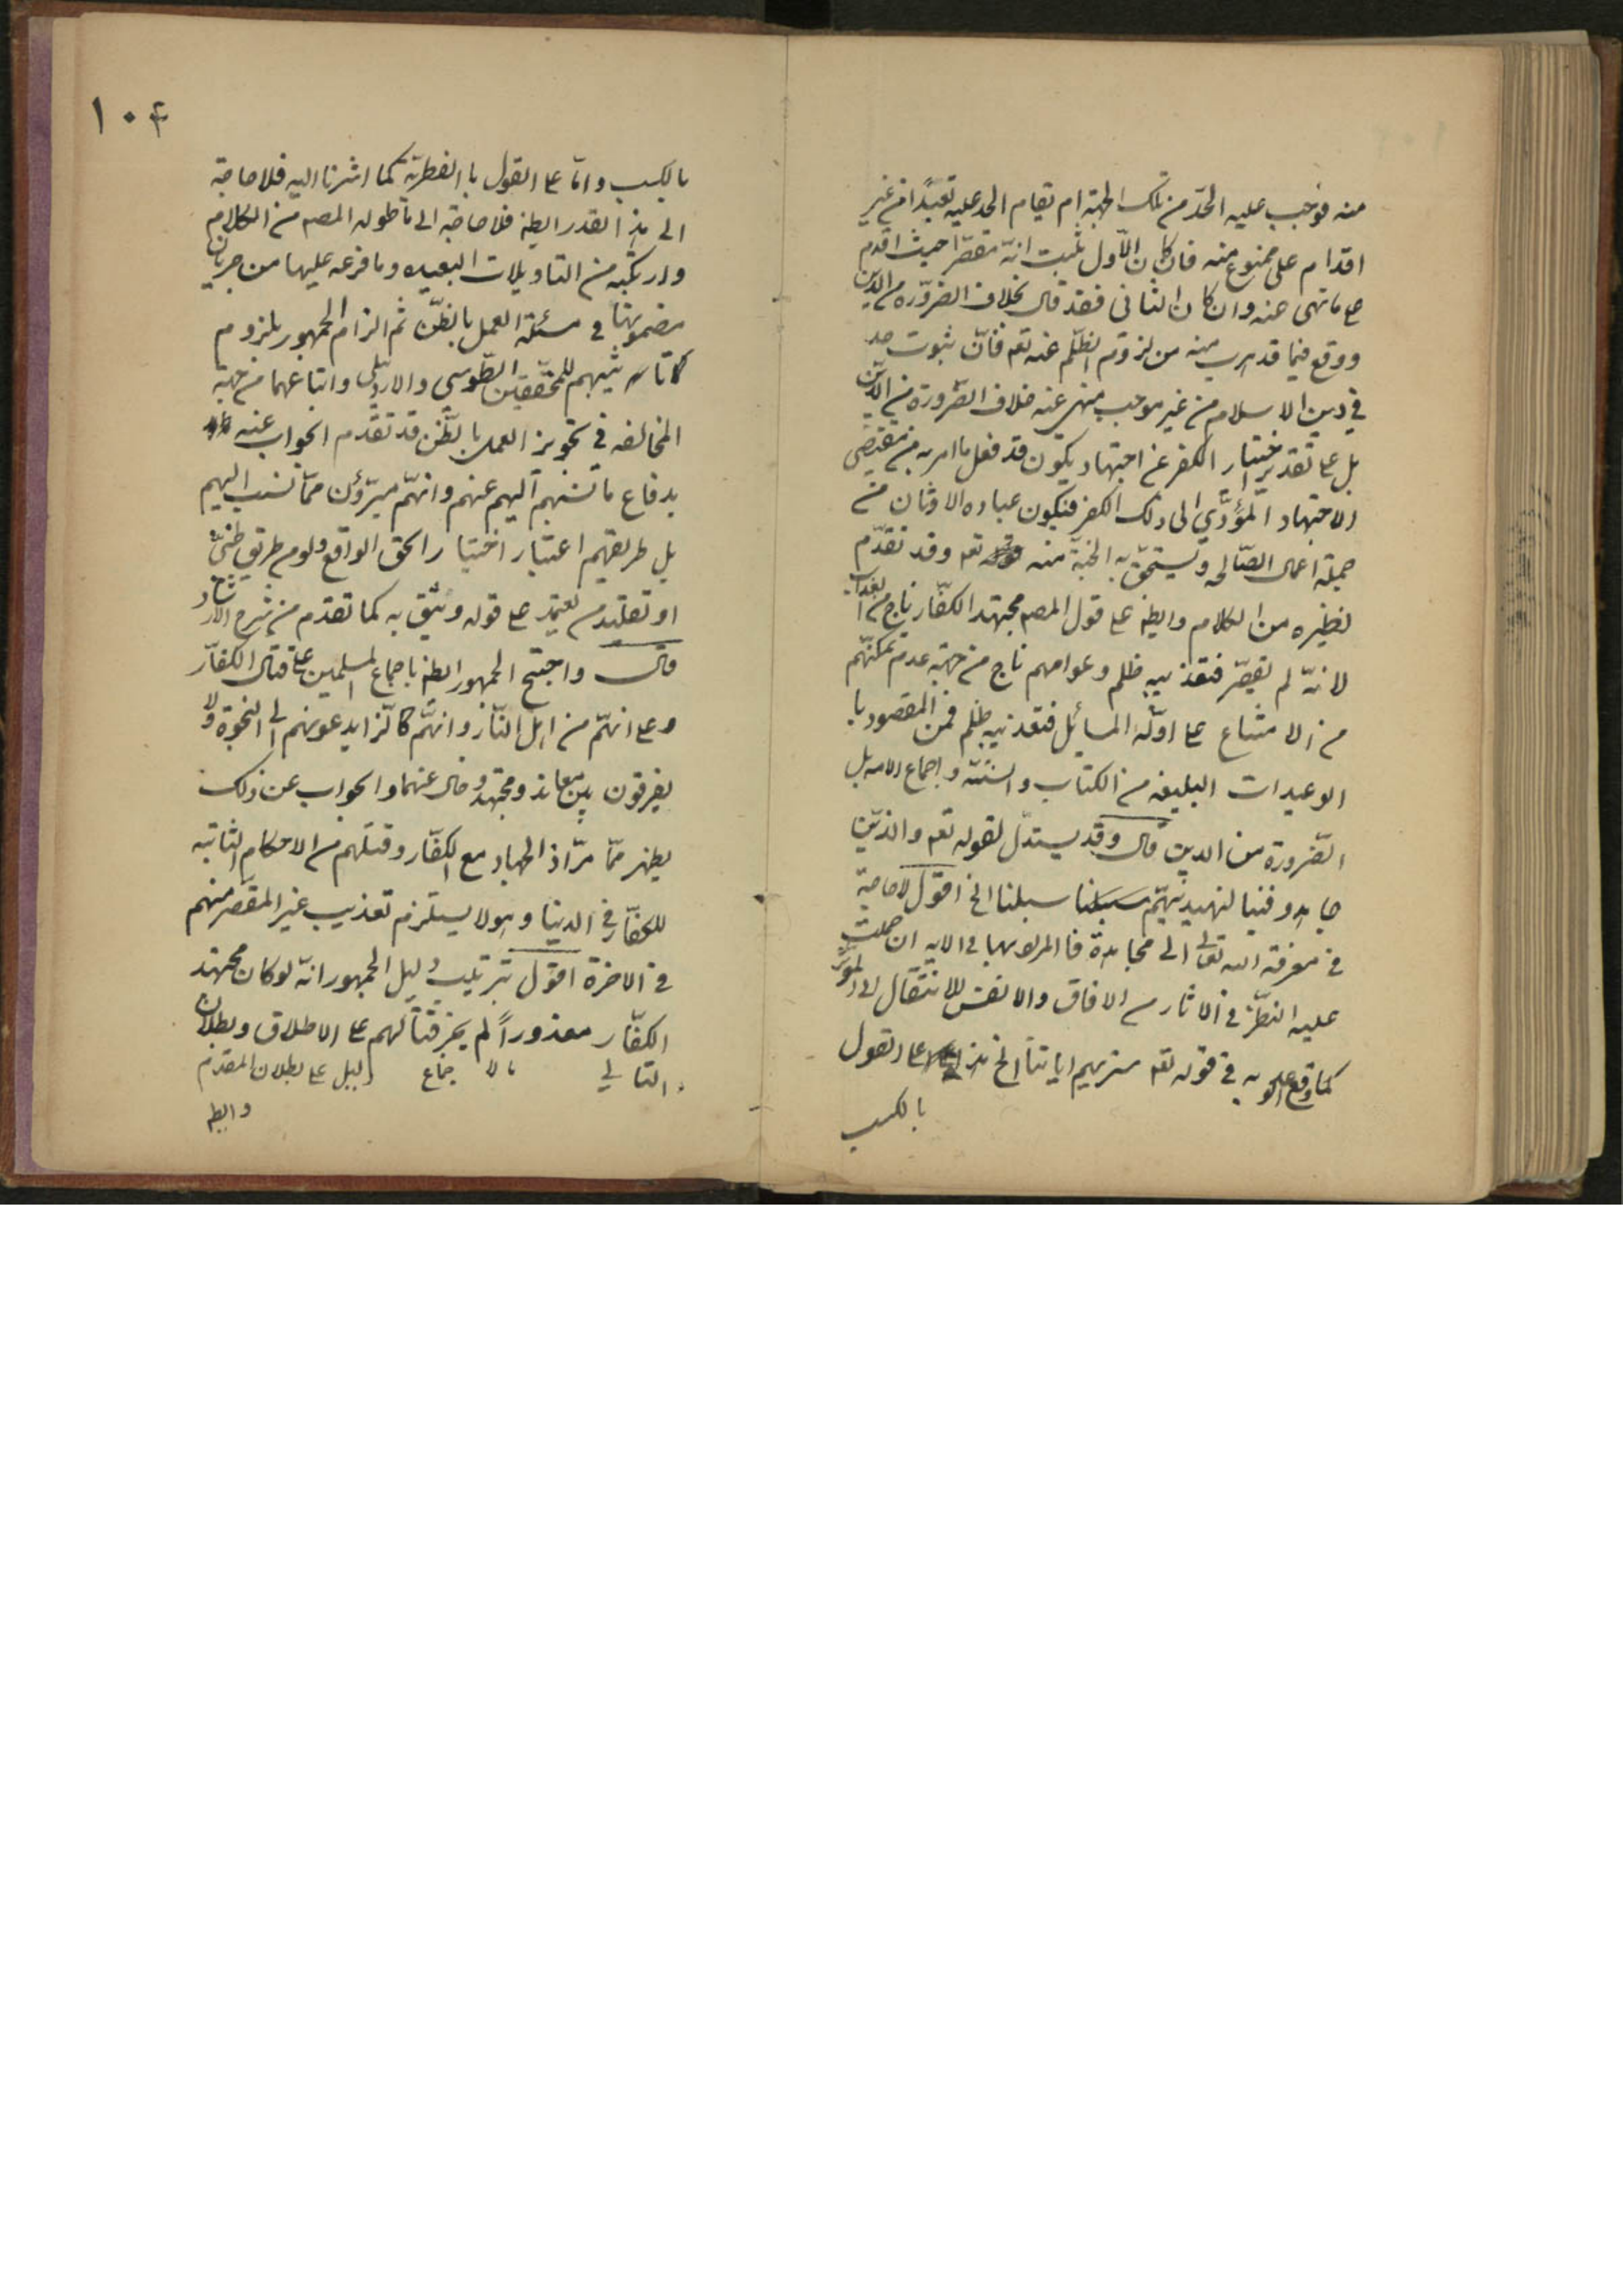 منه فوجب عليه الحدّ من تلك الجهة ام يقام الحد عليه تعبّداً من غير
اقدام على ممنوع منه فان كان الاّول ثبت انّه مقصّر حيث اقدم
على ما نهى عنه وان كان الثانى فقد قال بخلاف الضرورة من الدين
ووقع فيما قد هرب منه من لزوم الظلم عنه تعه فانّ ثبوت حد
فى دين الاسلام من غير موجب منهى عنه خلاف الضّرورة من الدّين
بل على تقدير اختيار الكفر عن اجتهاد يكون قد فعل ما امر به من مقتضى
الاجتهاد المؤدّى الى ذلك الكفر فيكون عباده الاوثان من
جملة اعمال الصّالحه ويستحقّ به الجنّة منه تعه وقد تقدّم
نظيره من الكلام وايضه على قول المصه مجتهد الكفّار ناج من العذاب
لانّه لم يقصّر فتعذيبه ظلم وعوامهم ناج من جهة عدم تمكنّهم
من الامتناع على اولّه المسائل فتعذيبه ظلم فمن المقصود با
الوعيدات البليغه من الكتاب والسنّة واجماع الامه بل
الضّرورة من الدين قال وقد يستدلّ لقوله تعه والذيّن
جاهدو فنيا لنهدينهّم سبلنا الخ اقول لا حاجة
فى معرفة الله تعالى الى مجاهدة فالمراد بها فى الايه ان حملت
عليه النظّر فى الاثار من الافاق والانفس للانتقال الى المؤثر
كما وقع به فى قوله تعه سنريهم اياتنا الخ هذا على القول
بالكسب
١٠٤
بالكسب وامّا على القول با الفطريّة كما اشرنا اليه فلا حاجة
الى هذا القدر ايضه فلا حاجة الى ما طوله المصه من الكلام
وارتكبه من التاويلات البعيده وما فرعه عليها من جريان
مضمونها فى مسئلة العمل بالظّن ثم الزام الجمهور بلزوم
للمحقّقين الطّوسى والاردبيلى واتباعهما من جهة
المخالفه فى تجويز العمل بالظّن قد تقدّم الجواب عنه
بدفاع ما نسبهم اليهم عنهم وانهّم مبرّؤن ممّا نسب اليهم
بل طريقهم اعتبار اختيار الحق الواقع ولو من طريق ظنىّ
او تقليد من يعتمد على قوله ويثق به كما تقدّم من شرح الارشاد
قال واحتج الجمهور ايضه باجماع المسلمين على قتال الكفاّر
وعلى انهّم من اهل النّار وانهّم كانوا يدعونهم الى النجوة ولا
يفرقون بين معاند ومجتهد وخال عنهما والجواب عن ذلك
يظهر ممّا مرّ اذ الجهاد مع الكفّار وقتلهم من الاحكام الثابته
للكفّار فى الدنيا وهو لا يستلزم تعذيب غير المقصّر منهم
فى الاخرة اقول ترتيب دليل الجمهور انّه لو كان مجتهد
الكفّار معذوراً لم يجز قتالهم على الاطلاق وبطلان
التالى بالاجماع دليل على بطلان المقدم
وايضه